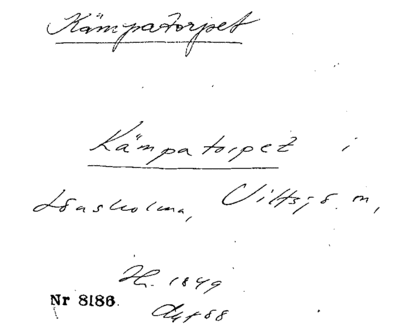 Kämpatorpet
Kämpatorpet i
Loasholma, Vittsjö m,
H. 1849
Nr 8186.